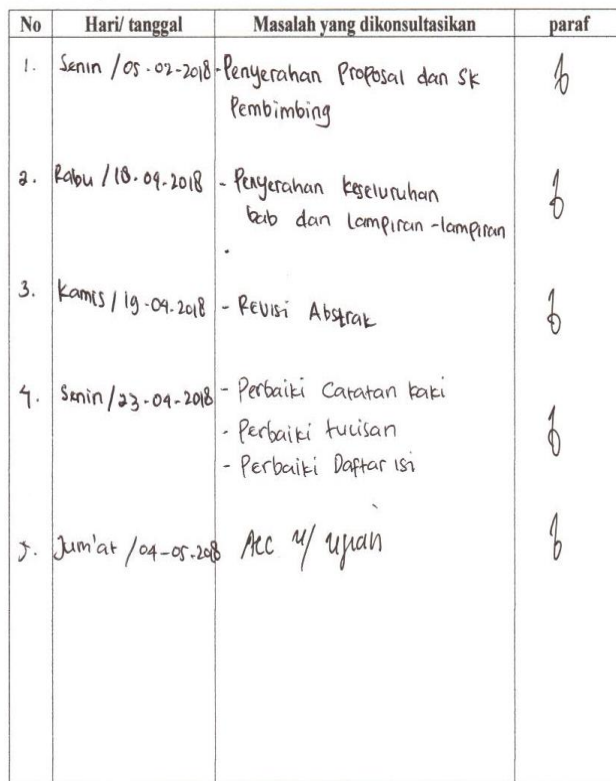 No Hari/ tanggal Masalah yang dikonsultasikan paraf
1. Senin / 05-02-2018 - Penyerahan Proposal dan SK
Pembimbing
2. Rabu / 18-04-2018 - Penyerahan keseluruhan
bab dan Lampiran -lampiran
3. Kamis / 19-04-2018 - Revisi Abstrak
4. Senin / 23-04-2018 - Perbaiki Catatan kaki
- Perbaiki tulisan
- Perbaiki Daftar isi
5. Jum'at / 04-05-2018 Acc u/ ujian